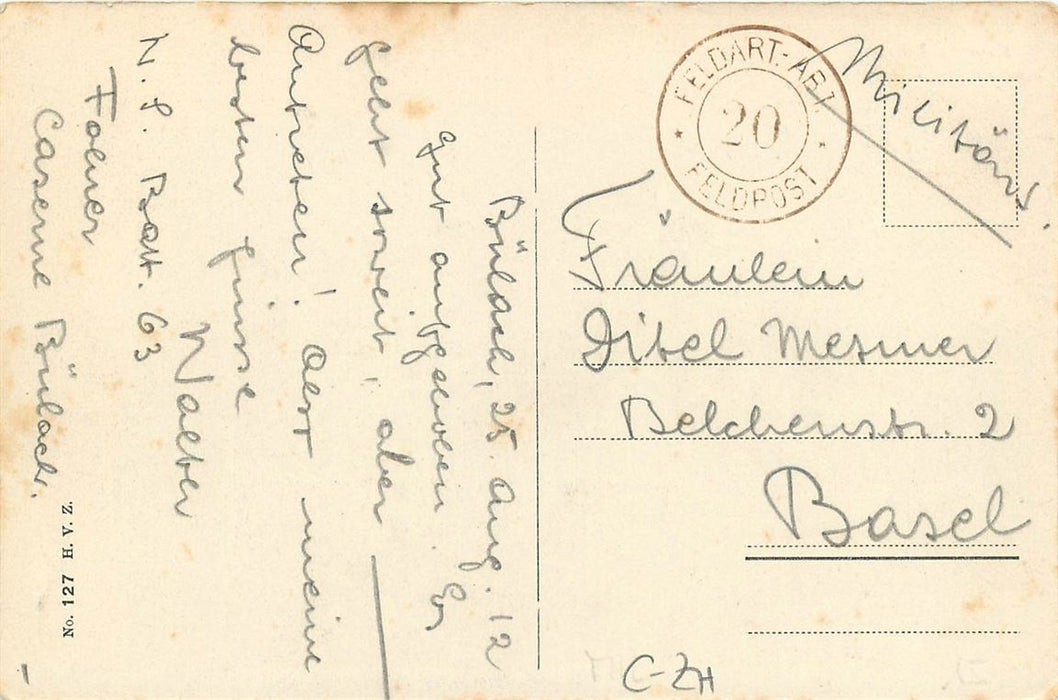 Bülach, 25. Aug. 12
Gut aufgehoben. Es
geht soweit, aber
Antreten! Also meine
besten Grüsse
Walter
Batt. 63
Caserne Bülach.
No. 127 H. V. Z.
FELDART.-ABT.
20
FELDPOST
Militärs.
Fräulein
Mesmer
Belchenstr. 2
Basel
C-ZH